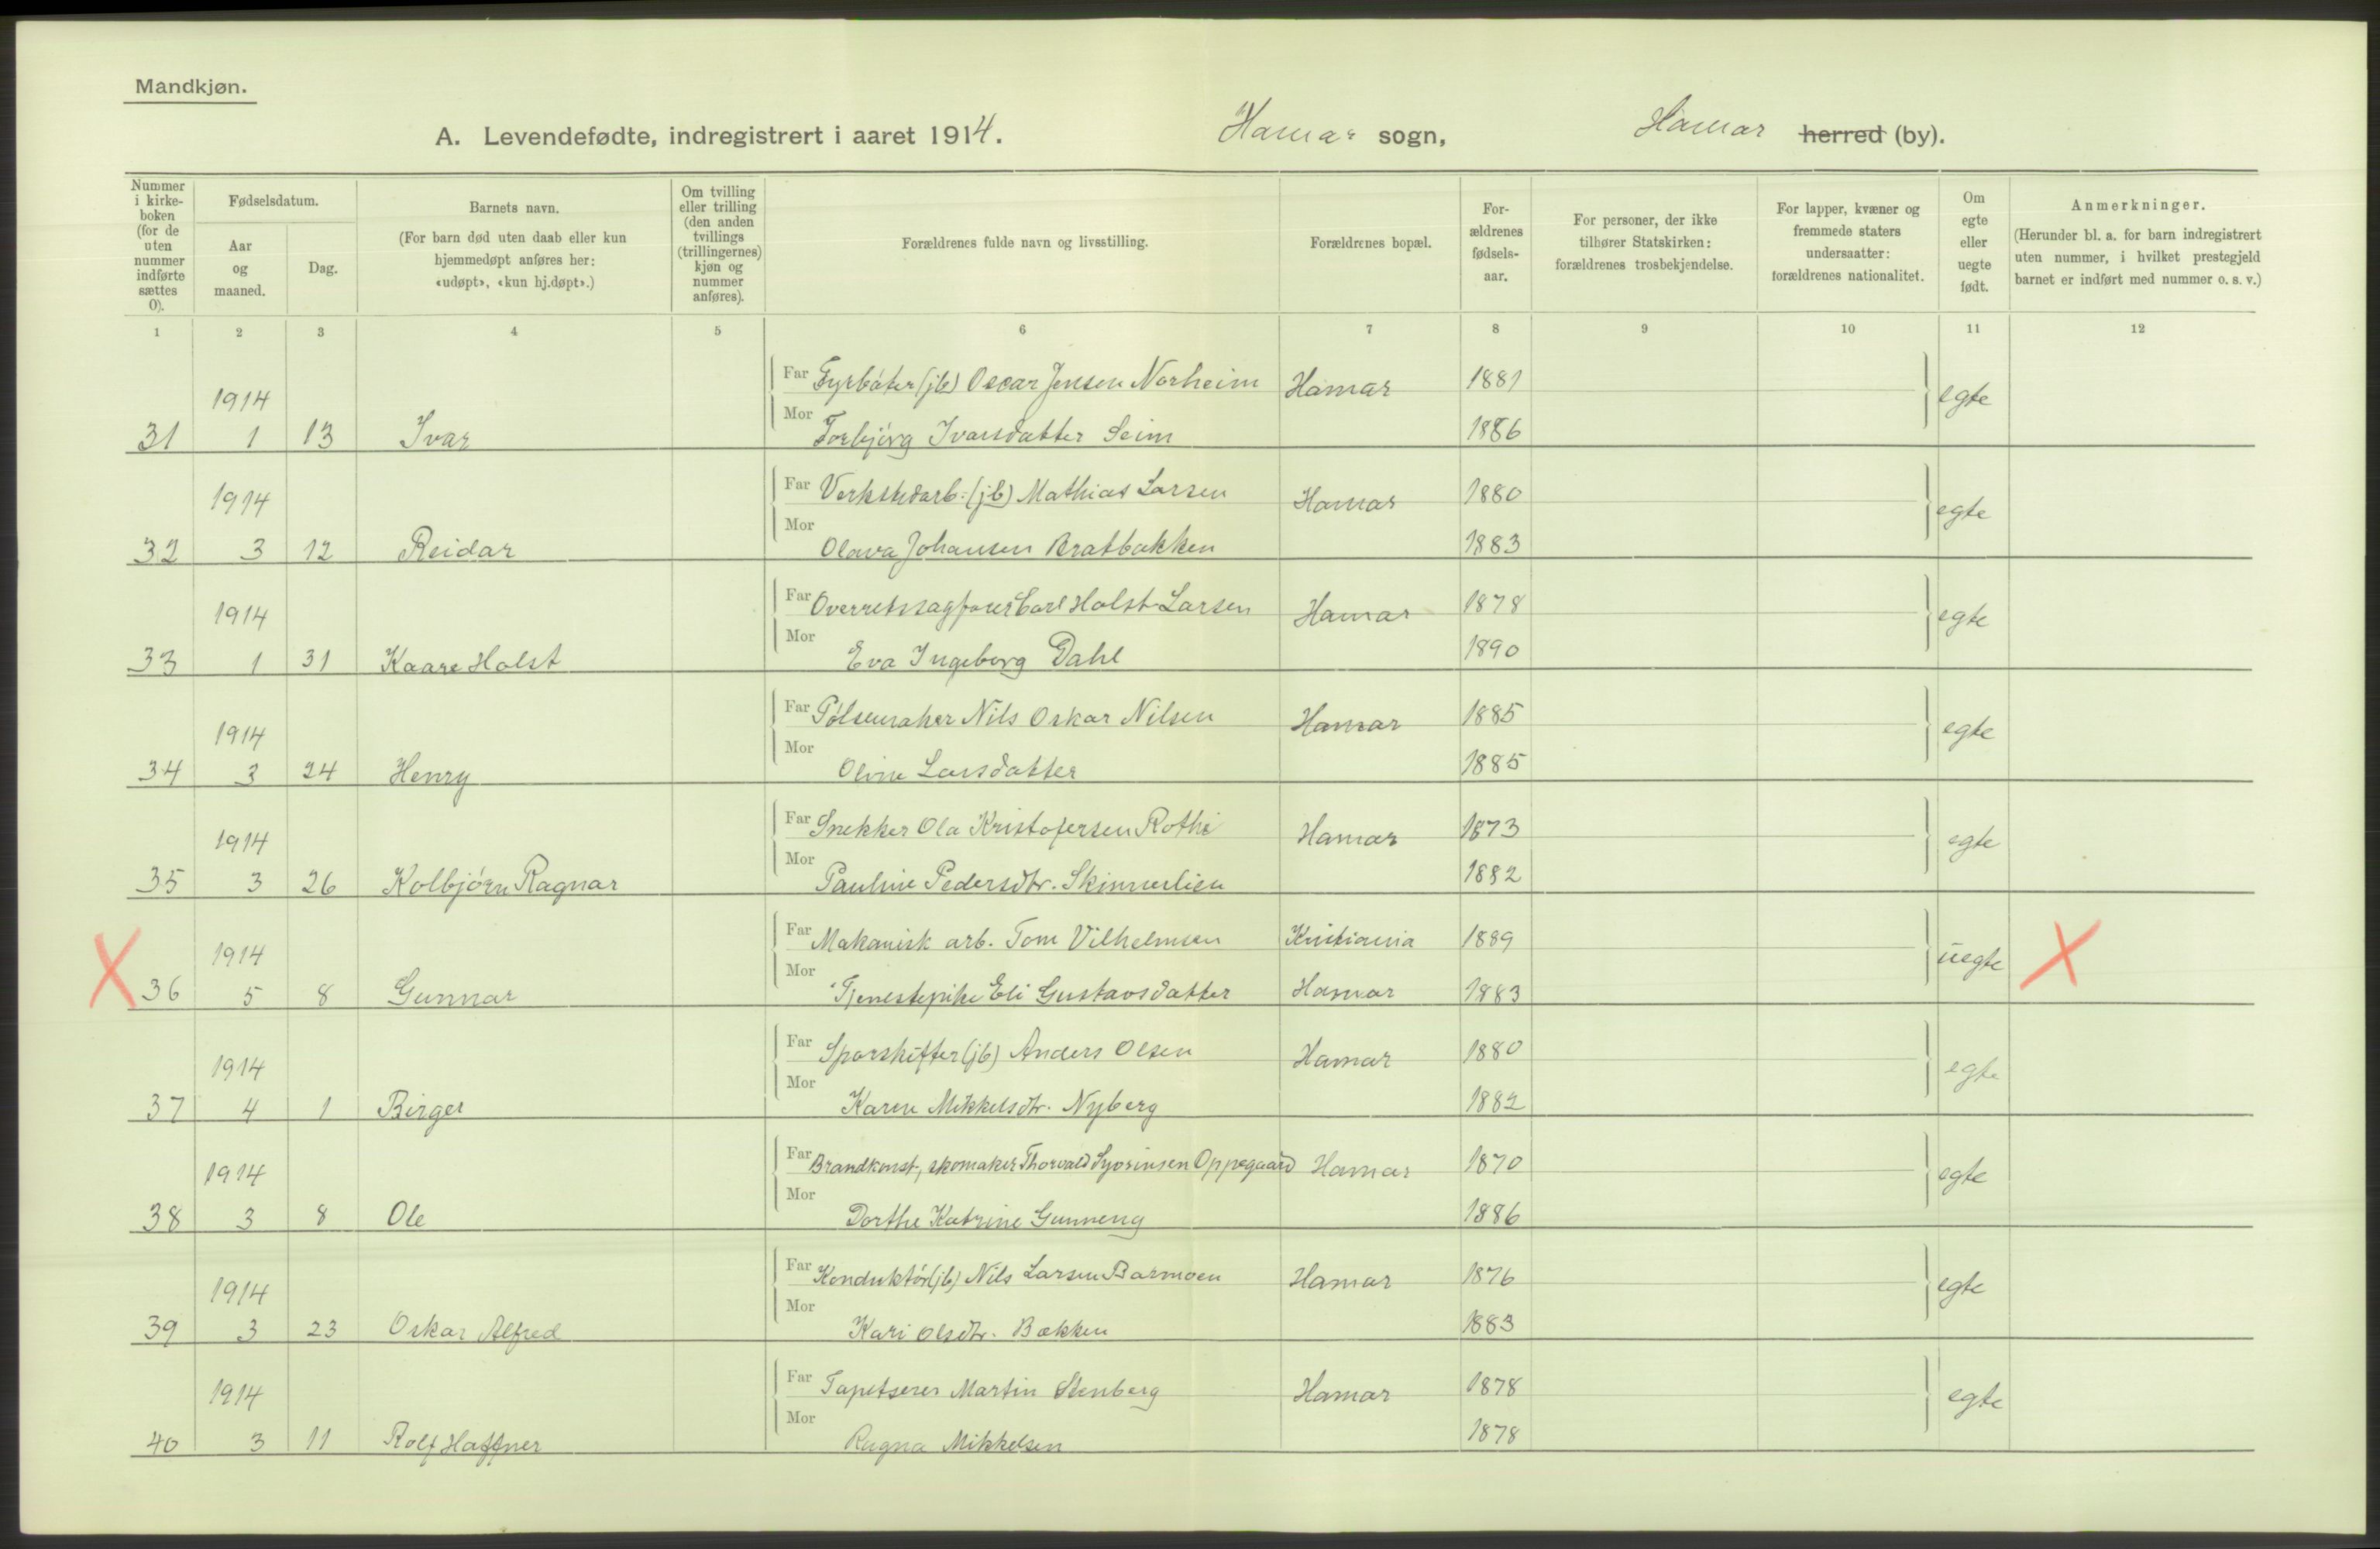 Mandkjøn.
A. Levendefødte, indregistrert i aaret 1914. Hamar sogn, Hamar herred (by).
Nummer i kirke-boken (for de uten nummer indførte sættes 0).
Fødselsdatum.
Aar og maaned.
Dag.
Barnets navn.
(For barn død uten daab eller kun hjemmedøpt anføres her: «udøpt», «kun hj.døpt».)
Om tvilling eller trilling (den anden tvillings (trillingernes) kjøn og nummer anføres).
Forældrenes fulde navn og livsstilling.
Forældrenes bopæl.
For-ældrenes fødsels-aar.
For personer, der ikke tilhører Statskirken: forældrenes trosbekjendelse.
For lapper, kvæner og fremmede staters undersaatter: forældrenes nationalitet.
Om egte eller uegte født.
Anmerkninger.
(Herunder bl. a. for barn indregistrert uten nummer, i hvilket prestegjeld barnet er indført med nummer o. s. v.)
1 2 3 4 5 6 7 8 9 10 11 12
1914 Far Fyrbøter (jb) Oscar Jensen Norheim Hamar 1881 egte
31 1 13 Ivar Mor Torbjørg Ivarsdatter Seim 1886
1914 Far Verkstedarb: (jb) Mathias Larsen Hamar 1880 egte
32 3 12 Reidar Mor Olava Johansen Bratbakken 1883
1914 Far Overretssagfører Carl Holst Larsen Hamar 1878 egte
33 1 31 Kaare Holst Mor Eva Ingeborg Dahl 1890
1914 Far Pølsemaker Nils Oskar Nilsen Hamar 1885 egte
34 3 24 Henry Mor Oline Larsdatter 1885
1914 Far Snekker Ola Kristofersen Rothe Hamar 1873 egte
35 3 26 Kolbjørn Ragnar Mor Pauline Pedersdtr. Skinnerlien 1882
1914 Far Makanisk arb. Tom Vilhelmsen Kristiania 1889 uegte
X 36 5 8 Gunnar Mor Tjenestepike Eli Gustavsdatter Hamar 1883 X
1914 Far Sporskifter (jb) Anders Olsen Hamar 1880 egte
37 4 1 Birger Mor Karen Mikkelsdtr. Nyberg 1882
1914 Far Brandkonst, skomaker Thorvald Syvrinsen Oppegaard Hamar 1870 egte
38 3 8 Ole Mor Dorthe Katrine Gunneng 1886
1914 Far Konduktør (jb) Nils Larsen Barmoen Hamar 1876 egte
39 3 23 Oskar Alfred Mor Kari Olsdtr. Bakken 1883
1914 Far Tapetserer Martin Stenberg Hamar 1878 egte
40 3 11 Rolf Haffner Mor Ragna Mikkelsen 1878